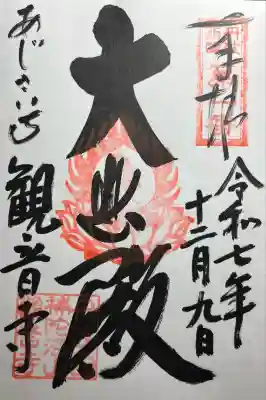 奉拝
令和七年
十二月九日
大悲殿
あじさい寺
観音寺